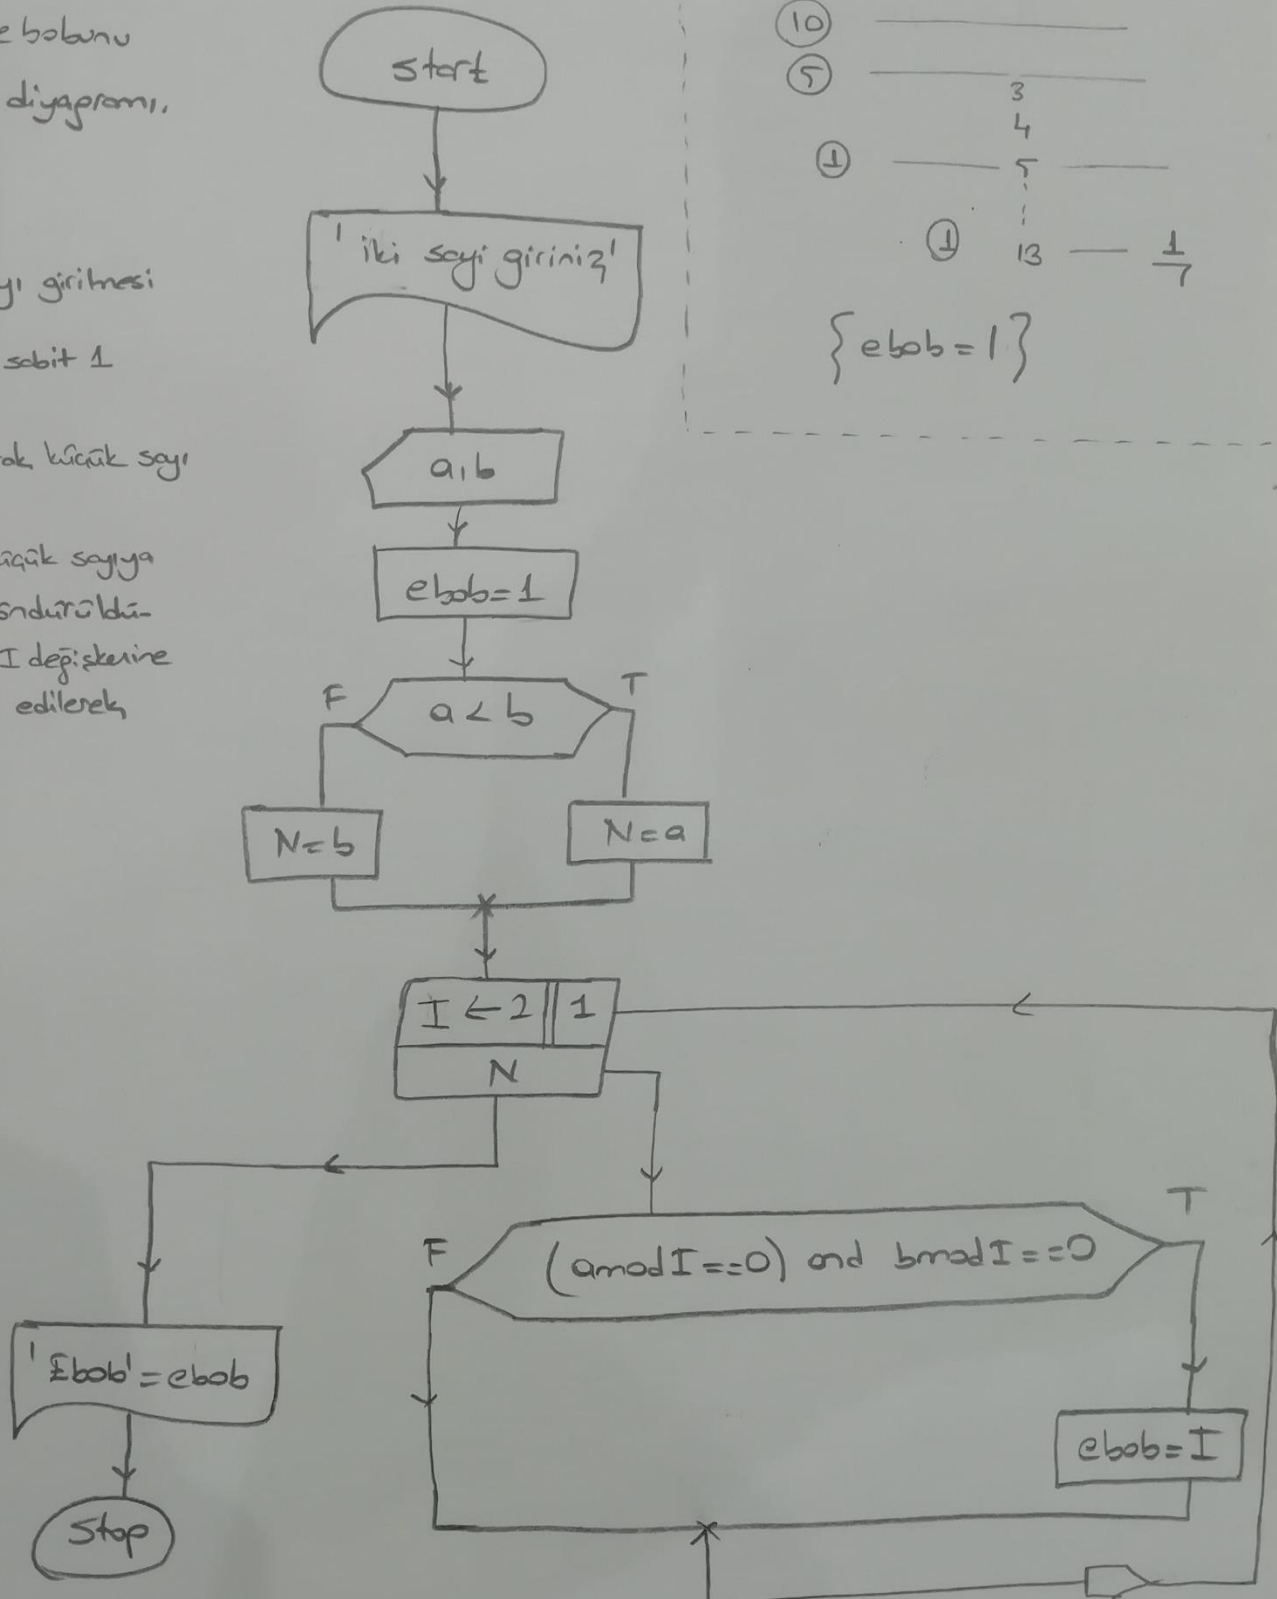 ebobunu
diyagramı.
girilmesi
sabit 1
küçük sayı
sayıya
I değişkenine
edilerek
start
' iki sayi giriniz'
a,b
ebob=1
F
a < b
T
N=b
N=a
I ← 2 || 1
N
F
(amodI==0) and bmodI==0
T
ebob=I
'Ebob'=ebob
Stop
10
5
3
4
1
5
1
13
1
7
{ebob=1}